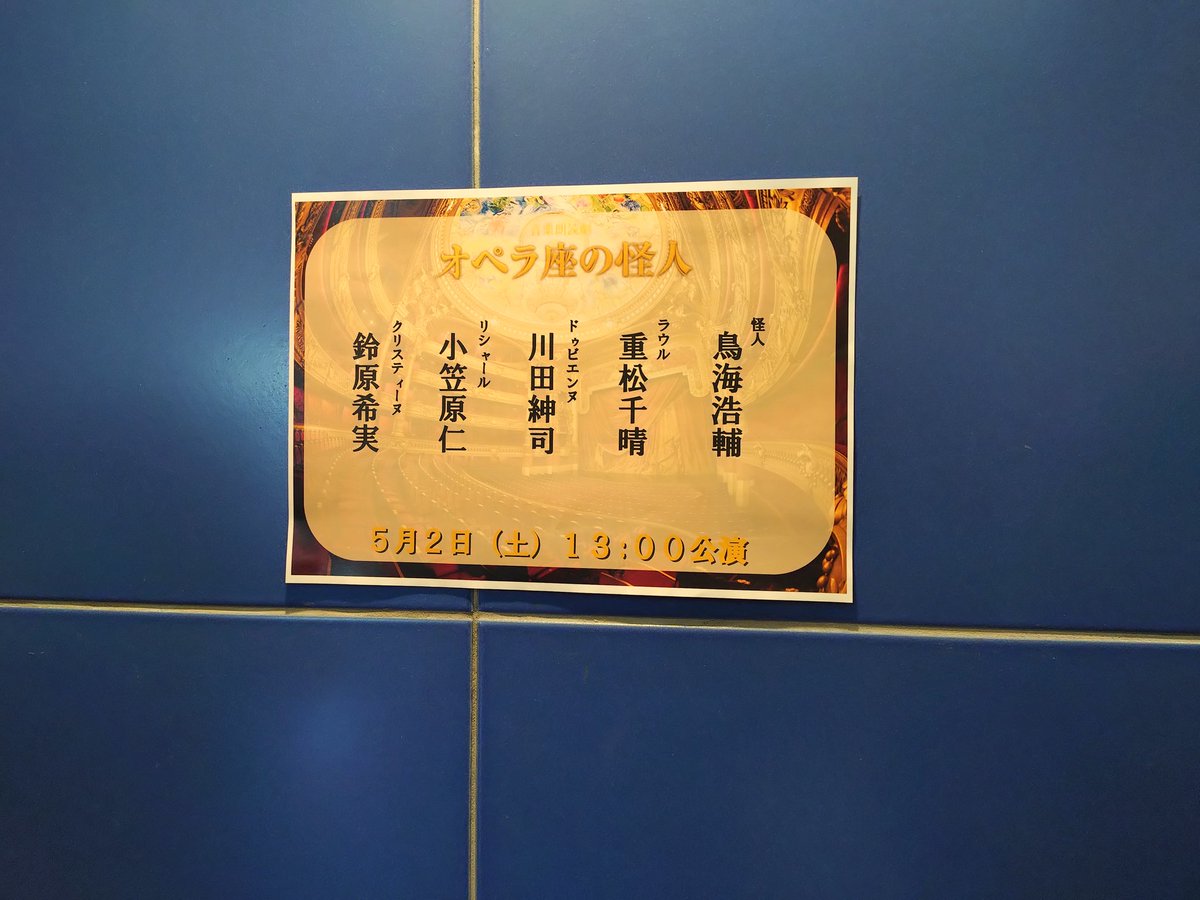 音楽朗読劇
オペラ座の怪人
怪人
鳥海浩輔
ラウル
重松千晴
ドゥビエンヌ
川田紳司
リシャール
小笠原仁
クリスティーヌ
鈴原希実
5月2日（土）13:00公演